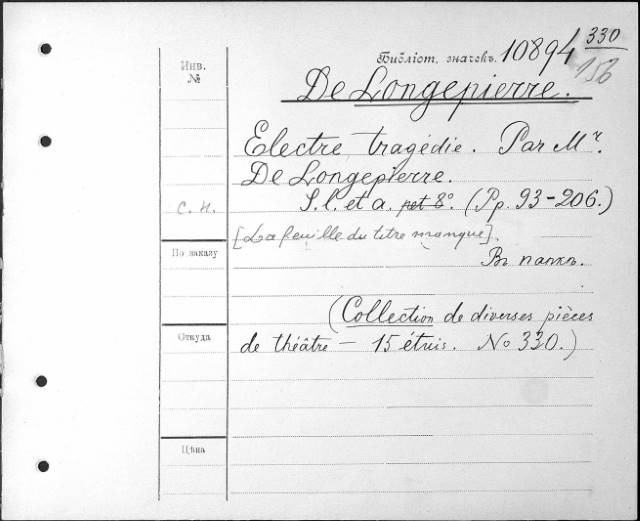 Инв. №
Библіот. значекъ. 10894 330
15b
De Longepierre.
Electre, tragédie. Par Mr.
De Longepierre.
С. н.
S. l. et a. pet 8º. (Pp. 93-206.)
[La feuille du titre manque].
По заказу
Въ папкѣ.
(Collection de diverses pièces
Откуда
de théâtre — 15 étuis. No 330.)
Цѣна